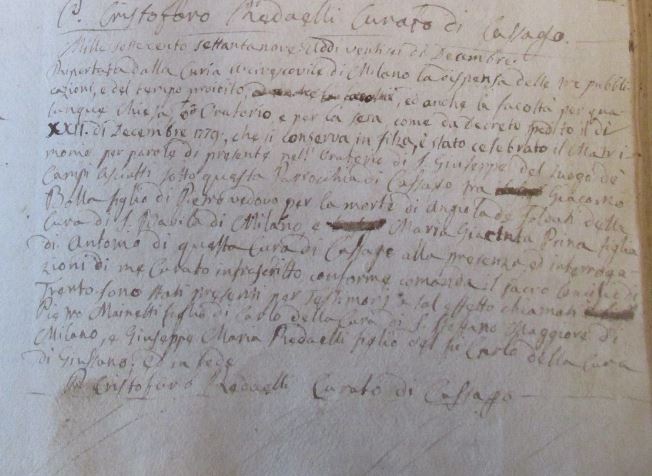 Cristoforo Redaelli Curato di Cassago.
Mille settecento settantanove Addi ventisei di Decembre.
Riportata dalla Curia Arcivescovile di Milano la dispensa delle tre pubbli
cazioni, e del tempo proibito, ed anche la facoltà per qua
lunque Chiesa, Oratorio, e per la sera come da Decreto il di
XXII. di Decembre 1779, che si conserva in filza, è stato celebrato il Matri
monio per parole di presente nell'Oratorio di S. Giuseppe del luogo de
Campi Asciutti sotto questa Parrocchia di Cassago tra Giacomo
Balla figlio di Pietro vedovo per la morte di Angiola de della
Cura di S. Babila di Milano e Maria Giacinta Prina figlia
di Antonio di questa Cura di Cassago alla presenza ed interroga
zioni di me Curato infrascritto conforme comanda il sacro Concilio di
Trento sono stati presenti per testimonj a tal effetto chiamati
Pietro Mainetti figlio di Carlo della Cura di S. Stefano Maggiore di
Milano, e Giuseppe Maria Redaelli figlio del Carlo della Cura
di Giussano; ed in fede
Cristoforo Redaelli Curato di Cassago